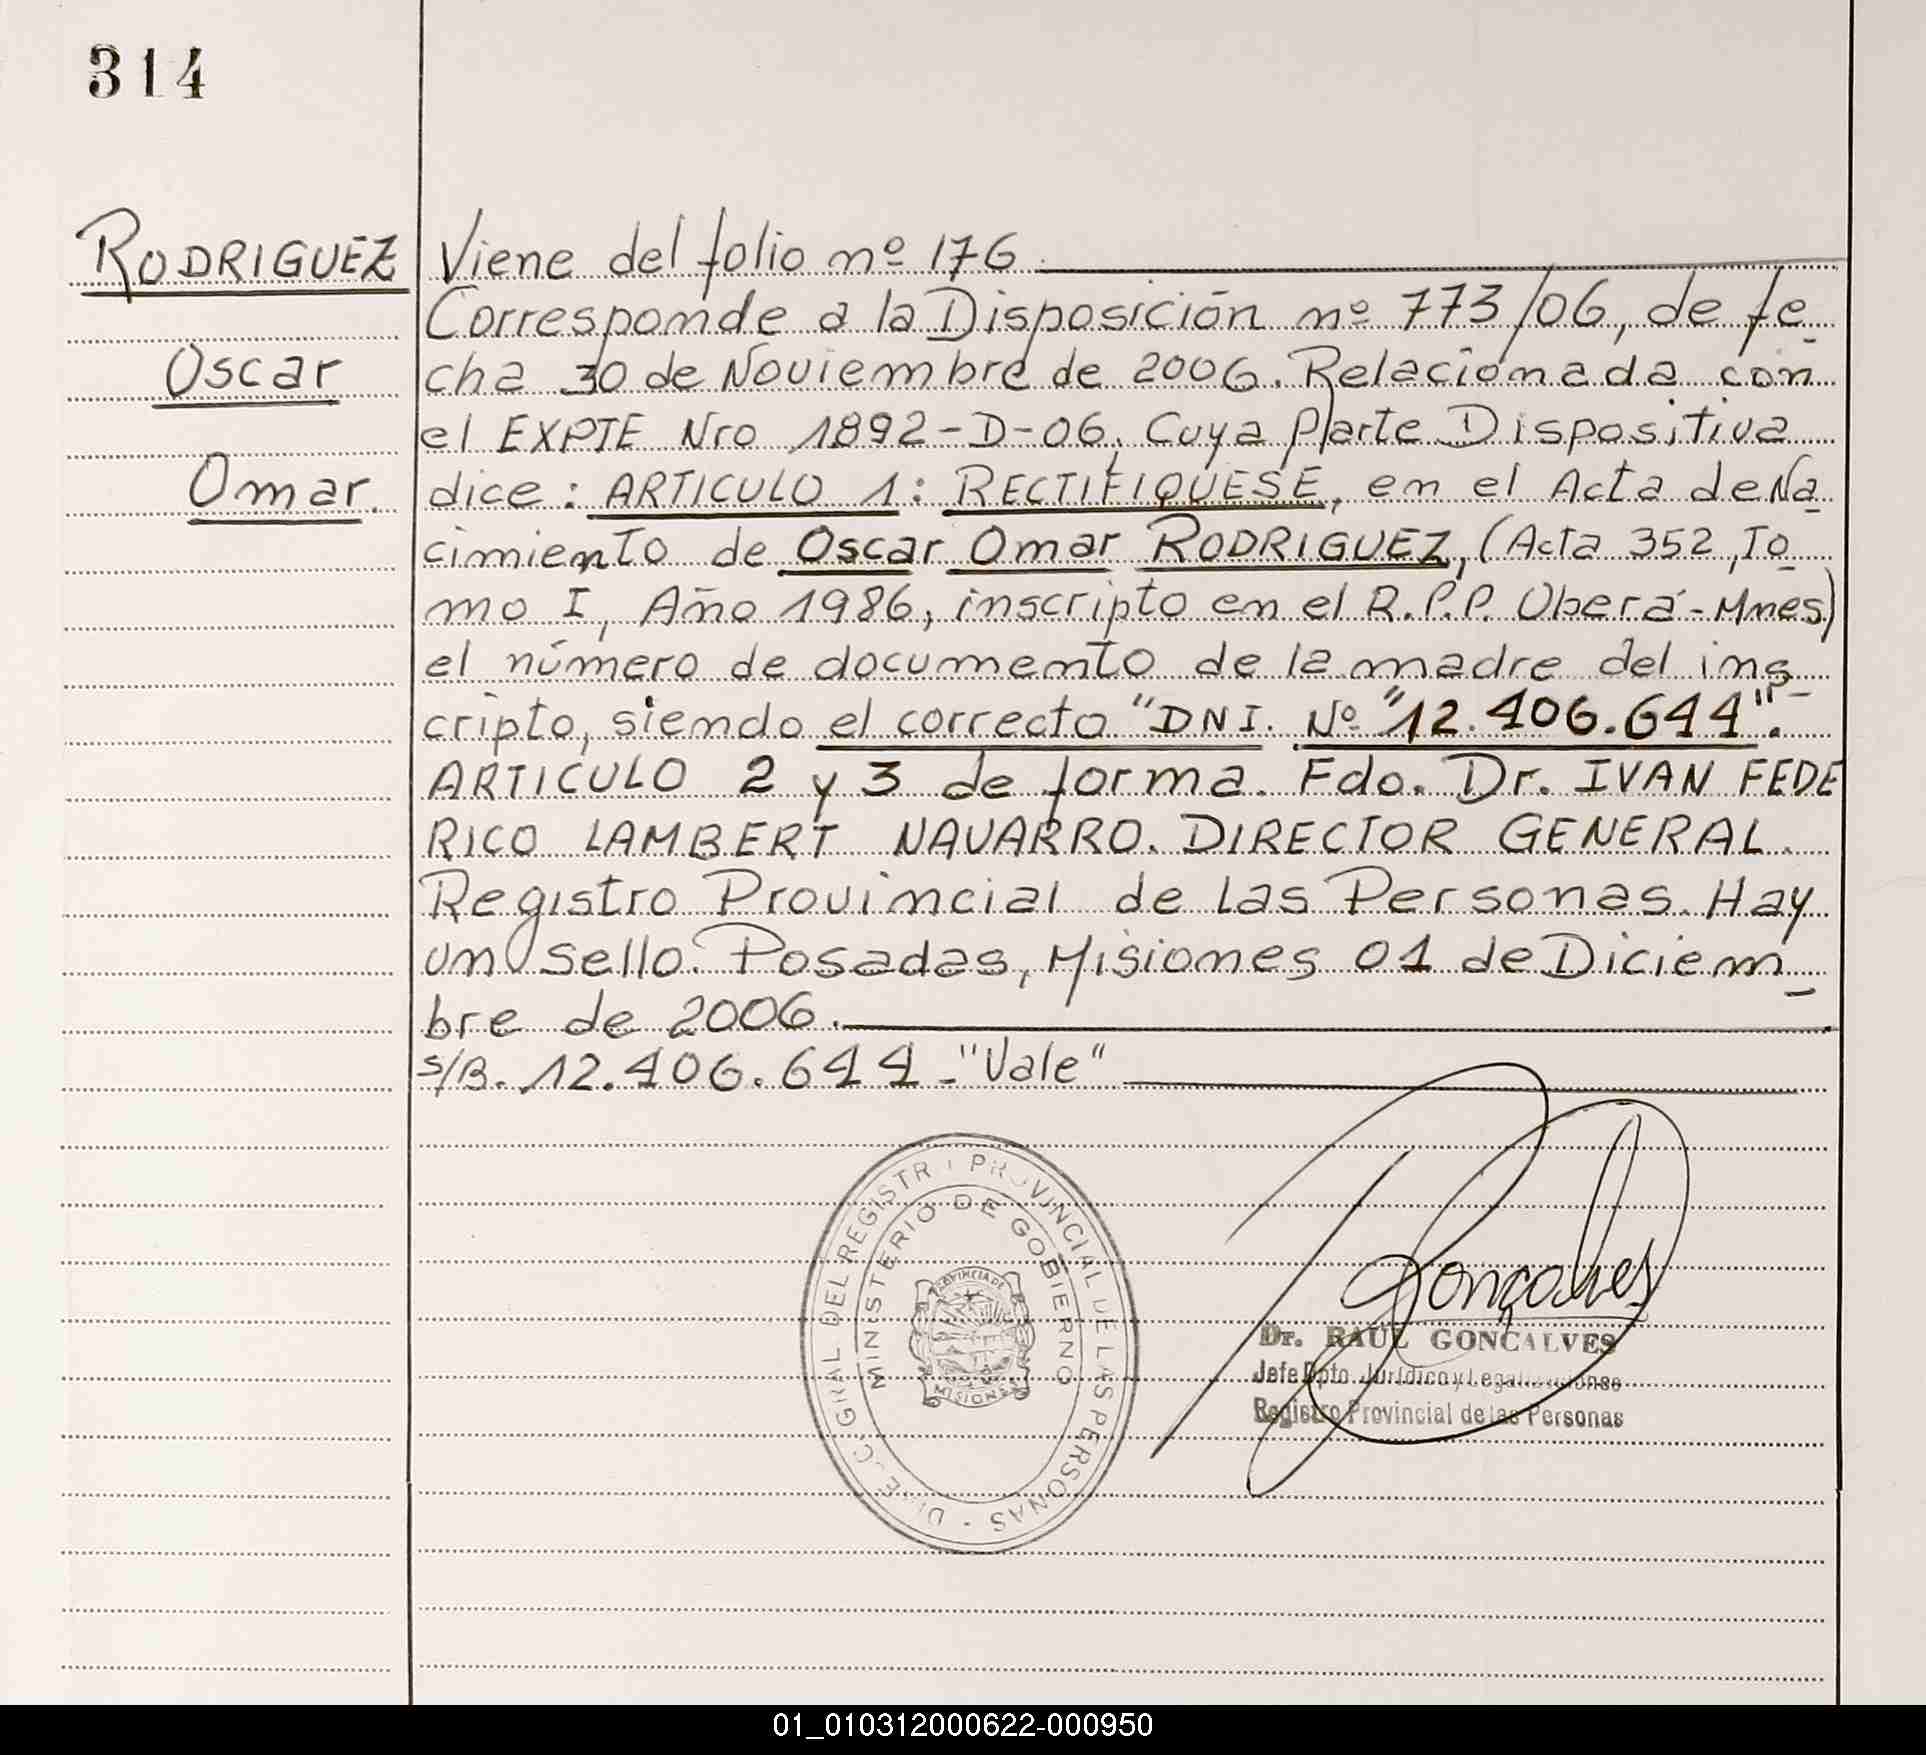 314
RODRIGUEZ
Oscar
Omar.
Viene del folio nº 176.
Corresponde a la Disposición nº 773/06, de fe-
cha 30 de Noviembre de 2006. Relacionada con
el EXPTE Nro 1892-D-06, Cuya Parte Dispositiva
dice: ARTICULO 1: RECTIFIQUESE, en el Acta de Na-
cimiento de Oscar Omar RODRIGUEZ, (Acta 352, To-
mo I, Año 1986, inscripto en el R.P.P. Oberá-Mnes)
el número de documento de la madre del ins-
cripto, siendo el correcto "DNI. Nº "12.406.644".
ARTICULO 2 y 3 de forma. Fdo. Dr. IVAN FEDE
RICO LAMBERT NAVARRO. DIRECTOR GENERAL.
Registro Provincial de las Personas. Hay
un sello. Posadas, Misiones 01 de Diciem-
bre de 2006.
s/B. 12.406.644 - "Vale"
DIREC. GRAL. DEL REGISTRO PROVINCIAL DE LAS PERSONAS -
MINISTERIO DE GOBIERNO
PROVINCIA DE
MISIONES
Gonçalves
Dr. RAUL GONCALVES
Jefe Dpto. Jurídico y Legalizaciones
Registro Provincial de las Personas
01_010312000622-000950